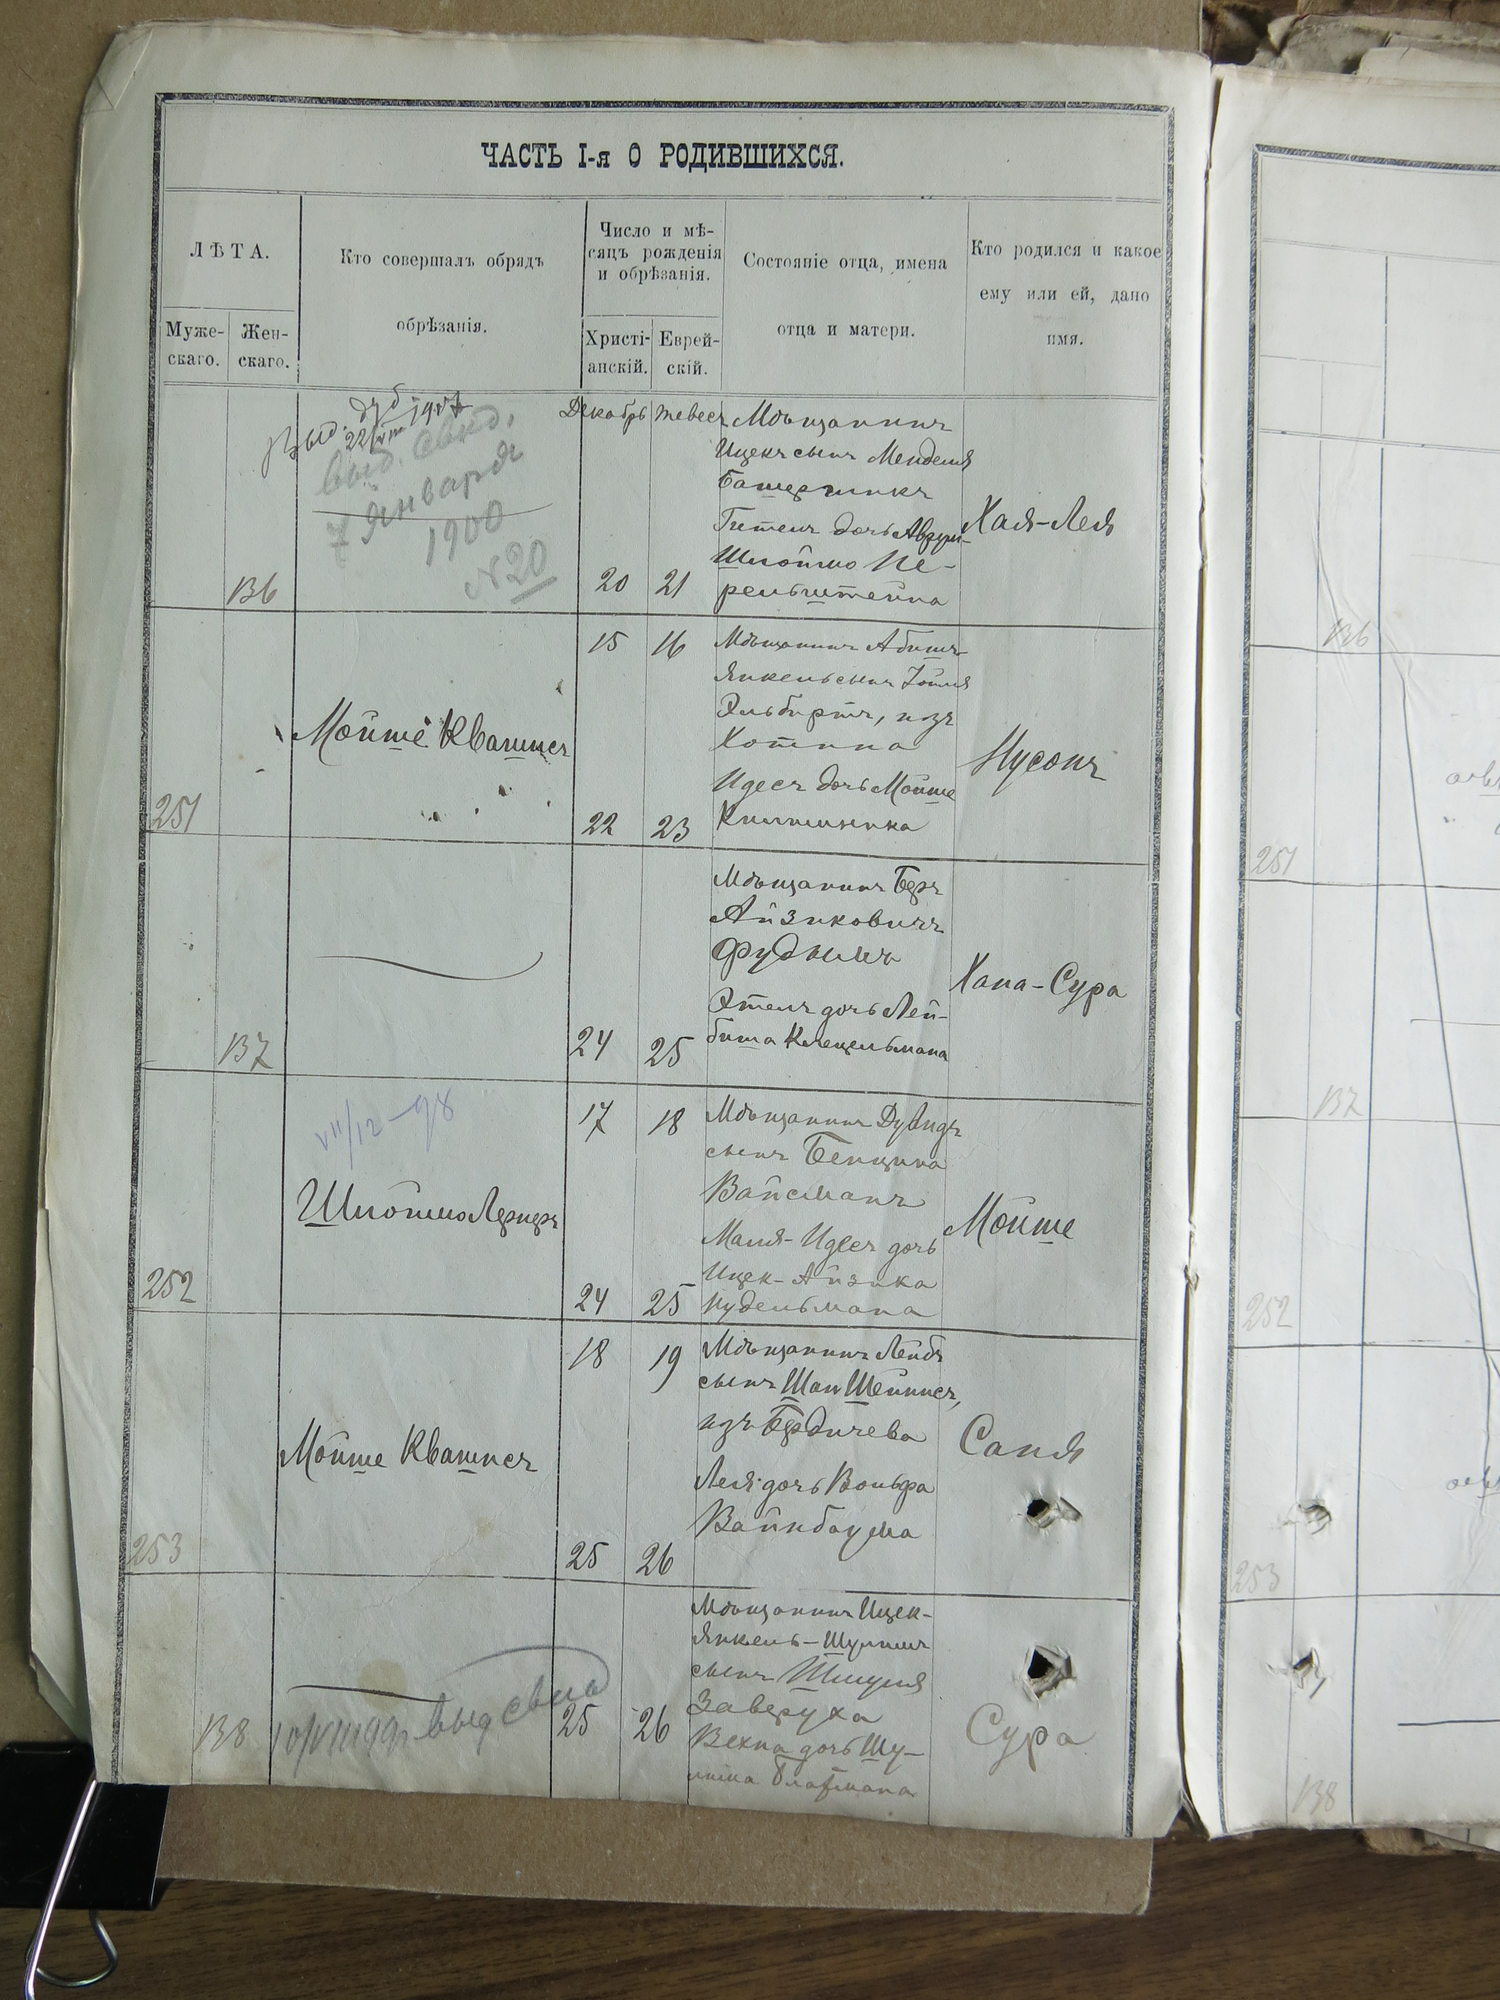 ЧАСТЬ I-я О РОДИВШИХСЯ.
ЛѢТА.
Муже-
скаго.
Жен-
скаго.
Кто совершалъ обрядъ
обрѣзанія.
Число и мѣ-
сяцъ рожденія
и обрѣзанія.
Христі-
анскій.
Еврей-
скій.
Состояніе отца, имена
отца и матери.
Кто родился и какое
ему или ей, дано
имя.
136
Выд. дуб
выд. свид.
7 Января
1900
№ 20
Декабрь
20
21
Мѣщанинъ
Ицекъ сынъ Менделя
дочь Аврум-
Шлоймо Пе-
рельштейна
Хая-Лея
251
Мойше Квашисъ
15
16
22
23
Мѣщанинъ Абишъ-
Янкель сынъ Хоймя
Эльбиртъ, изъ
Хотина
Идесъ дочь Мойше
Нусонъ
137
24
25
Мѣщанинъ Беръ
Айзиковичъ
Фудымъ
Этель дочь Лей-
биша
Хана-Сура
252
VII/12-98
Шлоймо Лернеръ
17
18
24
25
Мѣщанинъ Дувидъ
сынъ Бенциона
Вайсманъ
Маля-Идесъ дочь
Ицек-Айзика
Нудельмана
Мойше
253
Мойше Квашисъ
18
19
25
26
Мѣщанинъ Лейбъ
сынъ
изъ Бердичева
Лея дочь Вольфа
Вайнбаума
Саня
138
10/VIII 99г. выд свид
25
26
Мѣщанинъ Ицек-
Янкель-Шулимъ
сынъ Шмуля
Заверуха
дочь Шу-
лима
Сура
136
251
137
252
253
138